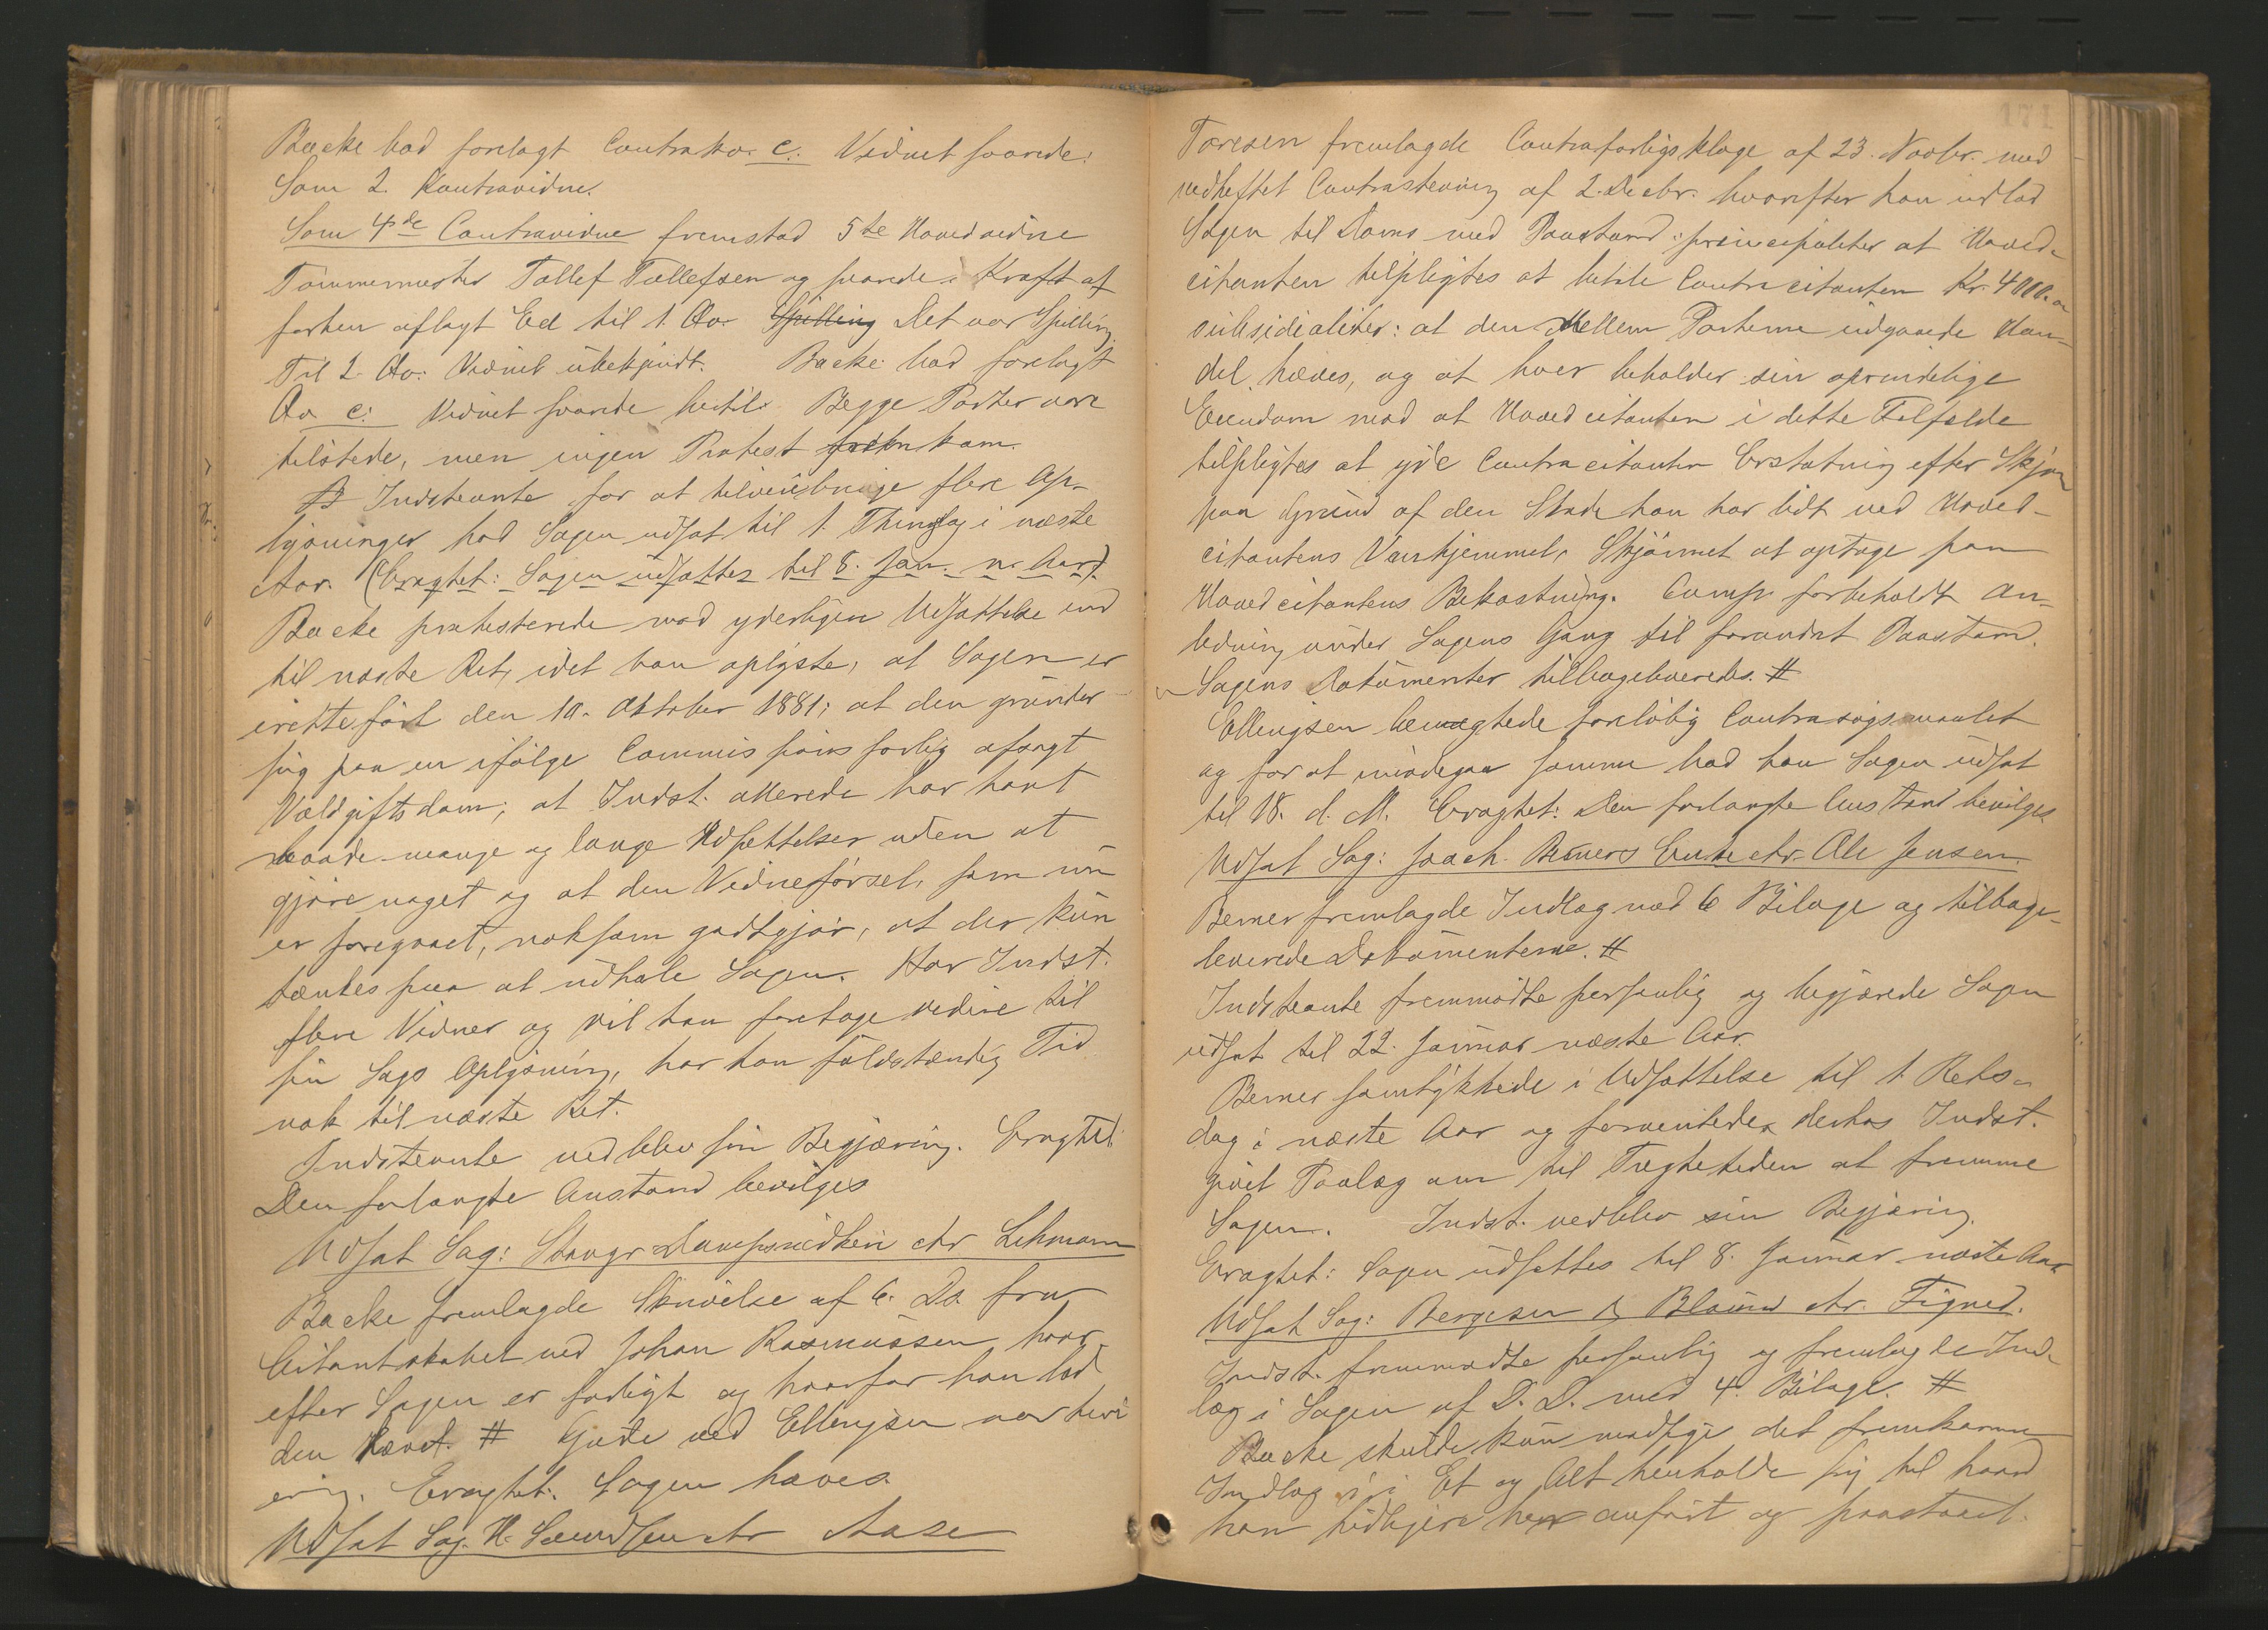 Backe bad forelagt Contrakv. c. Vidnet svarede:
Som 2. Kontravidne.
Som 4de Contravidne fremstod 5te Hovedvidne
Tømmermester Tollef Tollefsen og svarede i Kraft af
forhen aflagt Ed til 1. Qv. Spilling Det var Spilling
Til 2. Qv. Vidnet ubekjendt. Backe bad forelagt
Qv c: Vidnet svarede hertil: Begge Parter vare
tilstede, men ingen Protest frem kom.
Indstevnte for at tilveiebringe flere Op-
lysninger bad Sagen udsat til 1. Thingdag i næste
Aar. (Eragtet: Sagen udsættes til 8. Jan. n. Aar).
Backe protesterede mod yderligere Udsættelse end
til næste Ret, idet han oplyste, at Sagen er
iretteført den 10. Oktober 1881; at den grunder
sig paa en ifølge Commissions forlig afsagt
Voldgiftsdom; at Indst. allerede har havt
baade mange og lange Udsættelser uden at
gjøre noget og at den Vidneførsel, som nu
er foregaaet, noksom godtgjør, at der kun
tænkes paa at udhale Sagen. Har Indst.
flere Vidner og vil han foretage videre til
sin Sags Oplysning, har han fuldstændig Tid
nok til næste Ret.
Indstevnte vedblev sin Begjæring. Eragtet:
Den forlangte Anstand bevilges
Udsat Sag: Stavgr Dampsnidkeri ctr Lehmann
Backe fremlagde Skrivelse af 6. Ds. fra
Citantskabet ved Johan Rasmussen hvor-
efter Sagen er forligt og hvorfor han lod
den hævet. # Gude ved Ellingsen var heri
enig. Eragtet: Sagen hæves.
Udsat Sag. H. Sømdsen ctr Aase
171
Toresen fremlagde Contraforligsklage af 23. Novbr. med
vedheftet Contrastevning af 2. Decbr. hvorefter han indlod
Sagen til Doms med Paastand: principaliter at Hoved-
citanten tilpligtes at betale Contracitanten Kr. 4000.00
subsidialiter: at den Mellem Parterne indgaaede Han-
del hæves, og at hver beholder sin oprindelige
Eiendom mod at Hovedcitanten i dette Tilfælde
tilpligtes at yde Contracitanten Erstatning efter Skjøn
paa Grund af den Skade han har lidt ved Hoved-
citantens Vanhjemmel, Skjønnet at optage paa
Hovedcitantens Bekostning. Comp. forbeholdt An-
ledning under Sagens Gang til forandret Paastand.
Sagens Dokumenter tilbageleveredes. #
Ellingsen benægtede foreløbig Contrasøgsmaalet
og for at imødegaa samme bad han Sagen udsat
til 18. d. M. Eragtet: Den forlangte Anstand bevilges.
Udsat Sag: Joach. Berners Enke ctr. Ole Jensen.
Berner fremlagde Indlæg med 6 Bilage og tilbage-
leverede Dokumenterne. #
Indstevnte fremmødte personlig og begjærede Sagen
udsat til 22. Januar næste Aar.
Berner samtykkede i Udsættelse til 1. Rets-
dag i næste Aar og forventede derhos Indst.
givet Paalæg om til Tægtetiden at fremme
Sagen. Indst. vedblev sin Begjæring.
Eragtet: Sagen udsættes til 8. Januar næste Aar
Udsat Sag: Bergesen & Blauw ctr. Figved.
Indst. fremmødte personlig og fremlagde Ind-
læg i Sagen af D. D. med 4 Bilage. #
Backe skulde kun modsige det fremkomne
Indlæg i Et og Alt henholde sig til hvad
han tidligere har anført og paastaaet.